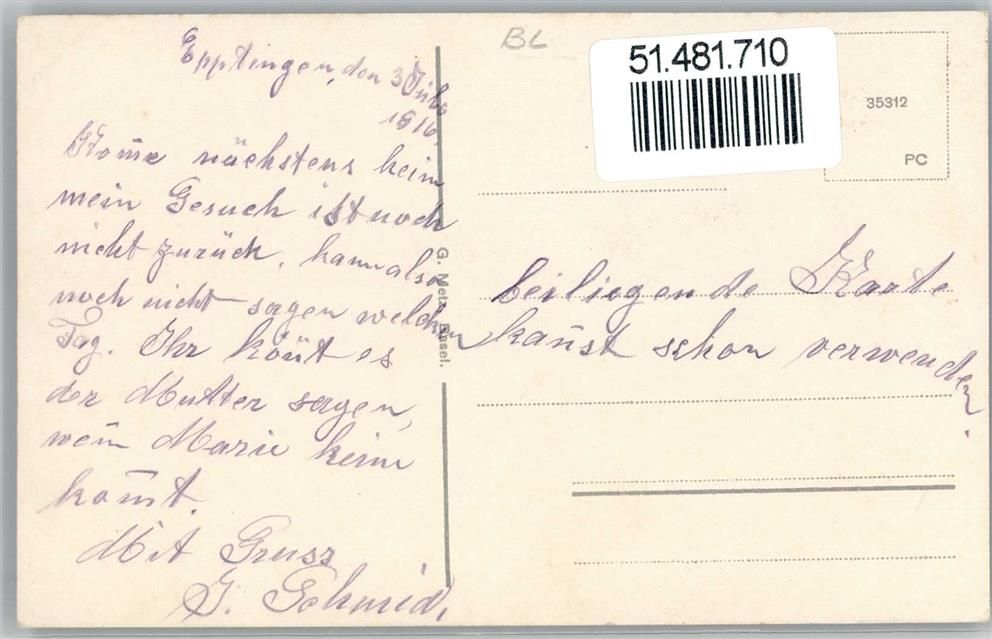 BL
51.481.710
35312
PC
Epptingen, den 3 Julie
1916.
Kom̄e nächstens heim
mein Gesuch ist noch
nicht zurück, kann also
noch nicht sagen welchen
Tag. Ihr kön̄t es
der Mutter sagen,
wen̄ Marie heim
kom̄t.
Mit Gruss
J. Schmid.
G. Metz, Basel.
beiliegende Karte
kan̄st schon verwenden.